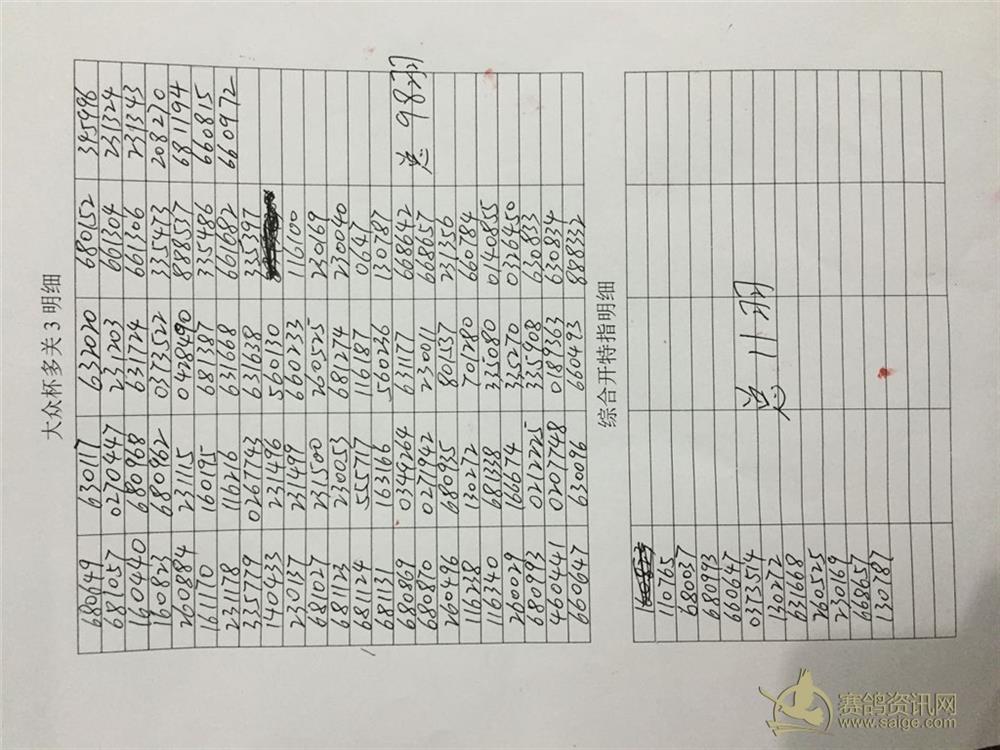 大众杯多关 3 明细
680649 630117 632020 680152 345996
681057 0270447 231203 661304 231324
160440 680968 631724 661306 231343
160823 680962 0373522 335473 208270
260884 231115 0428490 888537 681194
161170 160195 681387 335486 660815
231178 116216 631668 661682 660972
335779 0267743 631638 335397
140433 231496 560130
230137 231499 660233 116100
681027 231500 260525 230169
681123 230053 681274 230040
681124 555717 116187 0647
681131 163166 560236 130787
680869 0349264 631177 668642 总 98羽
680870 027942 230011 668657
260496 680935 801537 231356
116238 130272 701280 660784
116340 681338 335080 0140855
260029 160674 335270 0326450
680993 0212225 335908 630833
460441 0207748 0189363 630834
660647 630096 660493 888332
综合开特指明细
110765
680037
680993
660647
0373514
130272 总 11羽
631668
260525
230169
668657
130787
赛鸽资讯网
www.saige.com